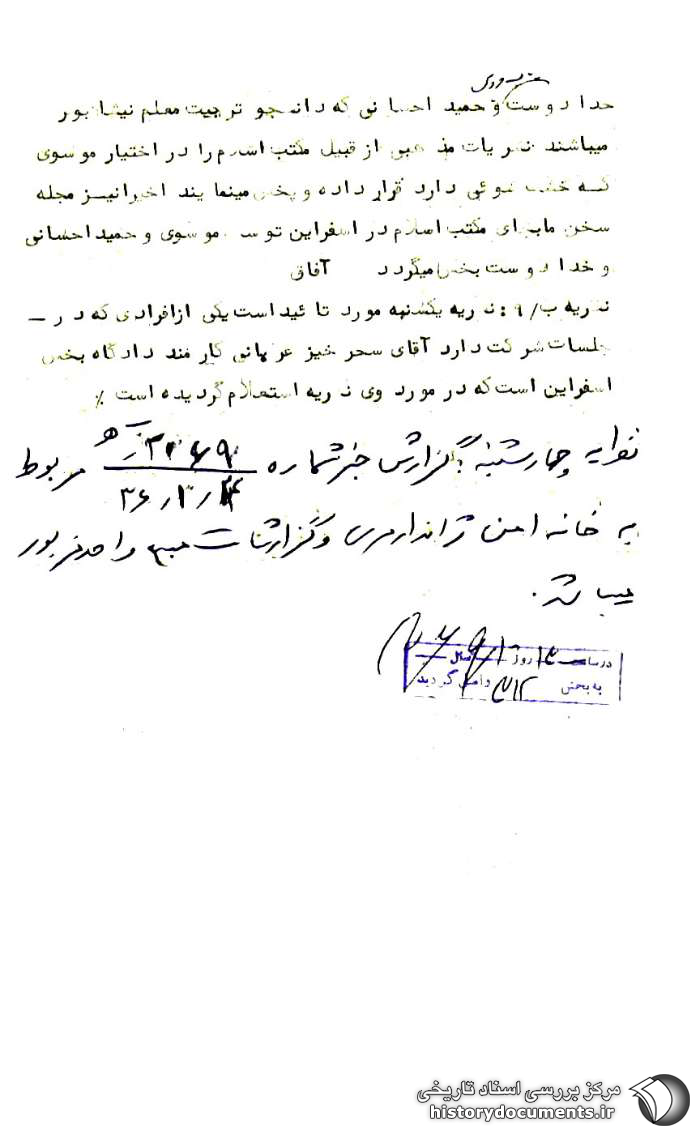 خدا دوست و حمید احسانی که دانشجو تربیت معلم نیشابور
میباشند نشریات مذهبی از قبیل مکتب اسلام را در اختیار موسوی
که خشت فوئی دارد قرار داده و پخش مینمایند اخیرا نیز مجله
سخن مابجای مکتب اسلام در اسفراین توسط موسوی و حمید احسانی
و خدا دوست پخش میگردد آفاقی
نظریه ب/۹ : نظریه یکشنبه مورد تائید است یکی از افرادی که در –
جلسات شرکت دارد آقای سحر خیز عریانی کارمند دادگاه بخش
اسفراین است که در مورد وی نظریه استعلام گردیده است ٪
نظریه چهارشنبه : گزارش خبر شماره مربوط
به خانه امن ژاندارمری و گزارشات
میباشد .
در ساعت روز
به بخش ۳۱۲ واصل گردید
مرکز بررسی اسناد تاریخی
historydocuments.ir